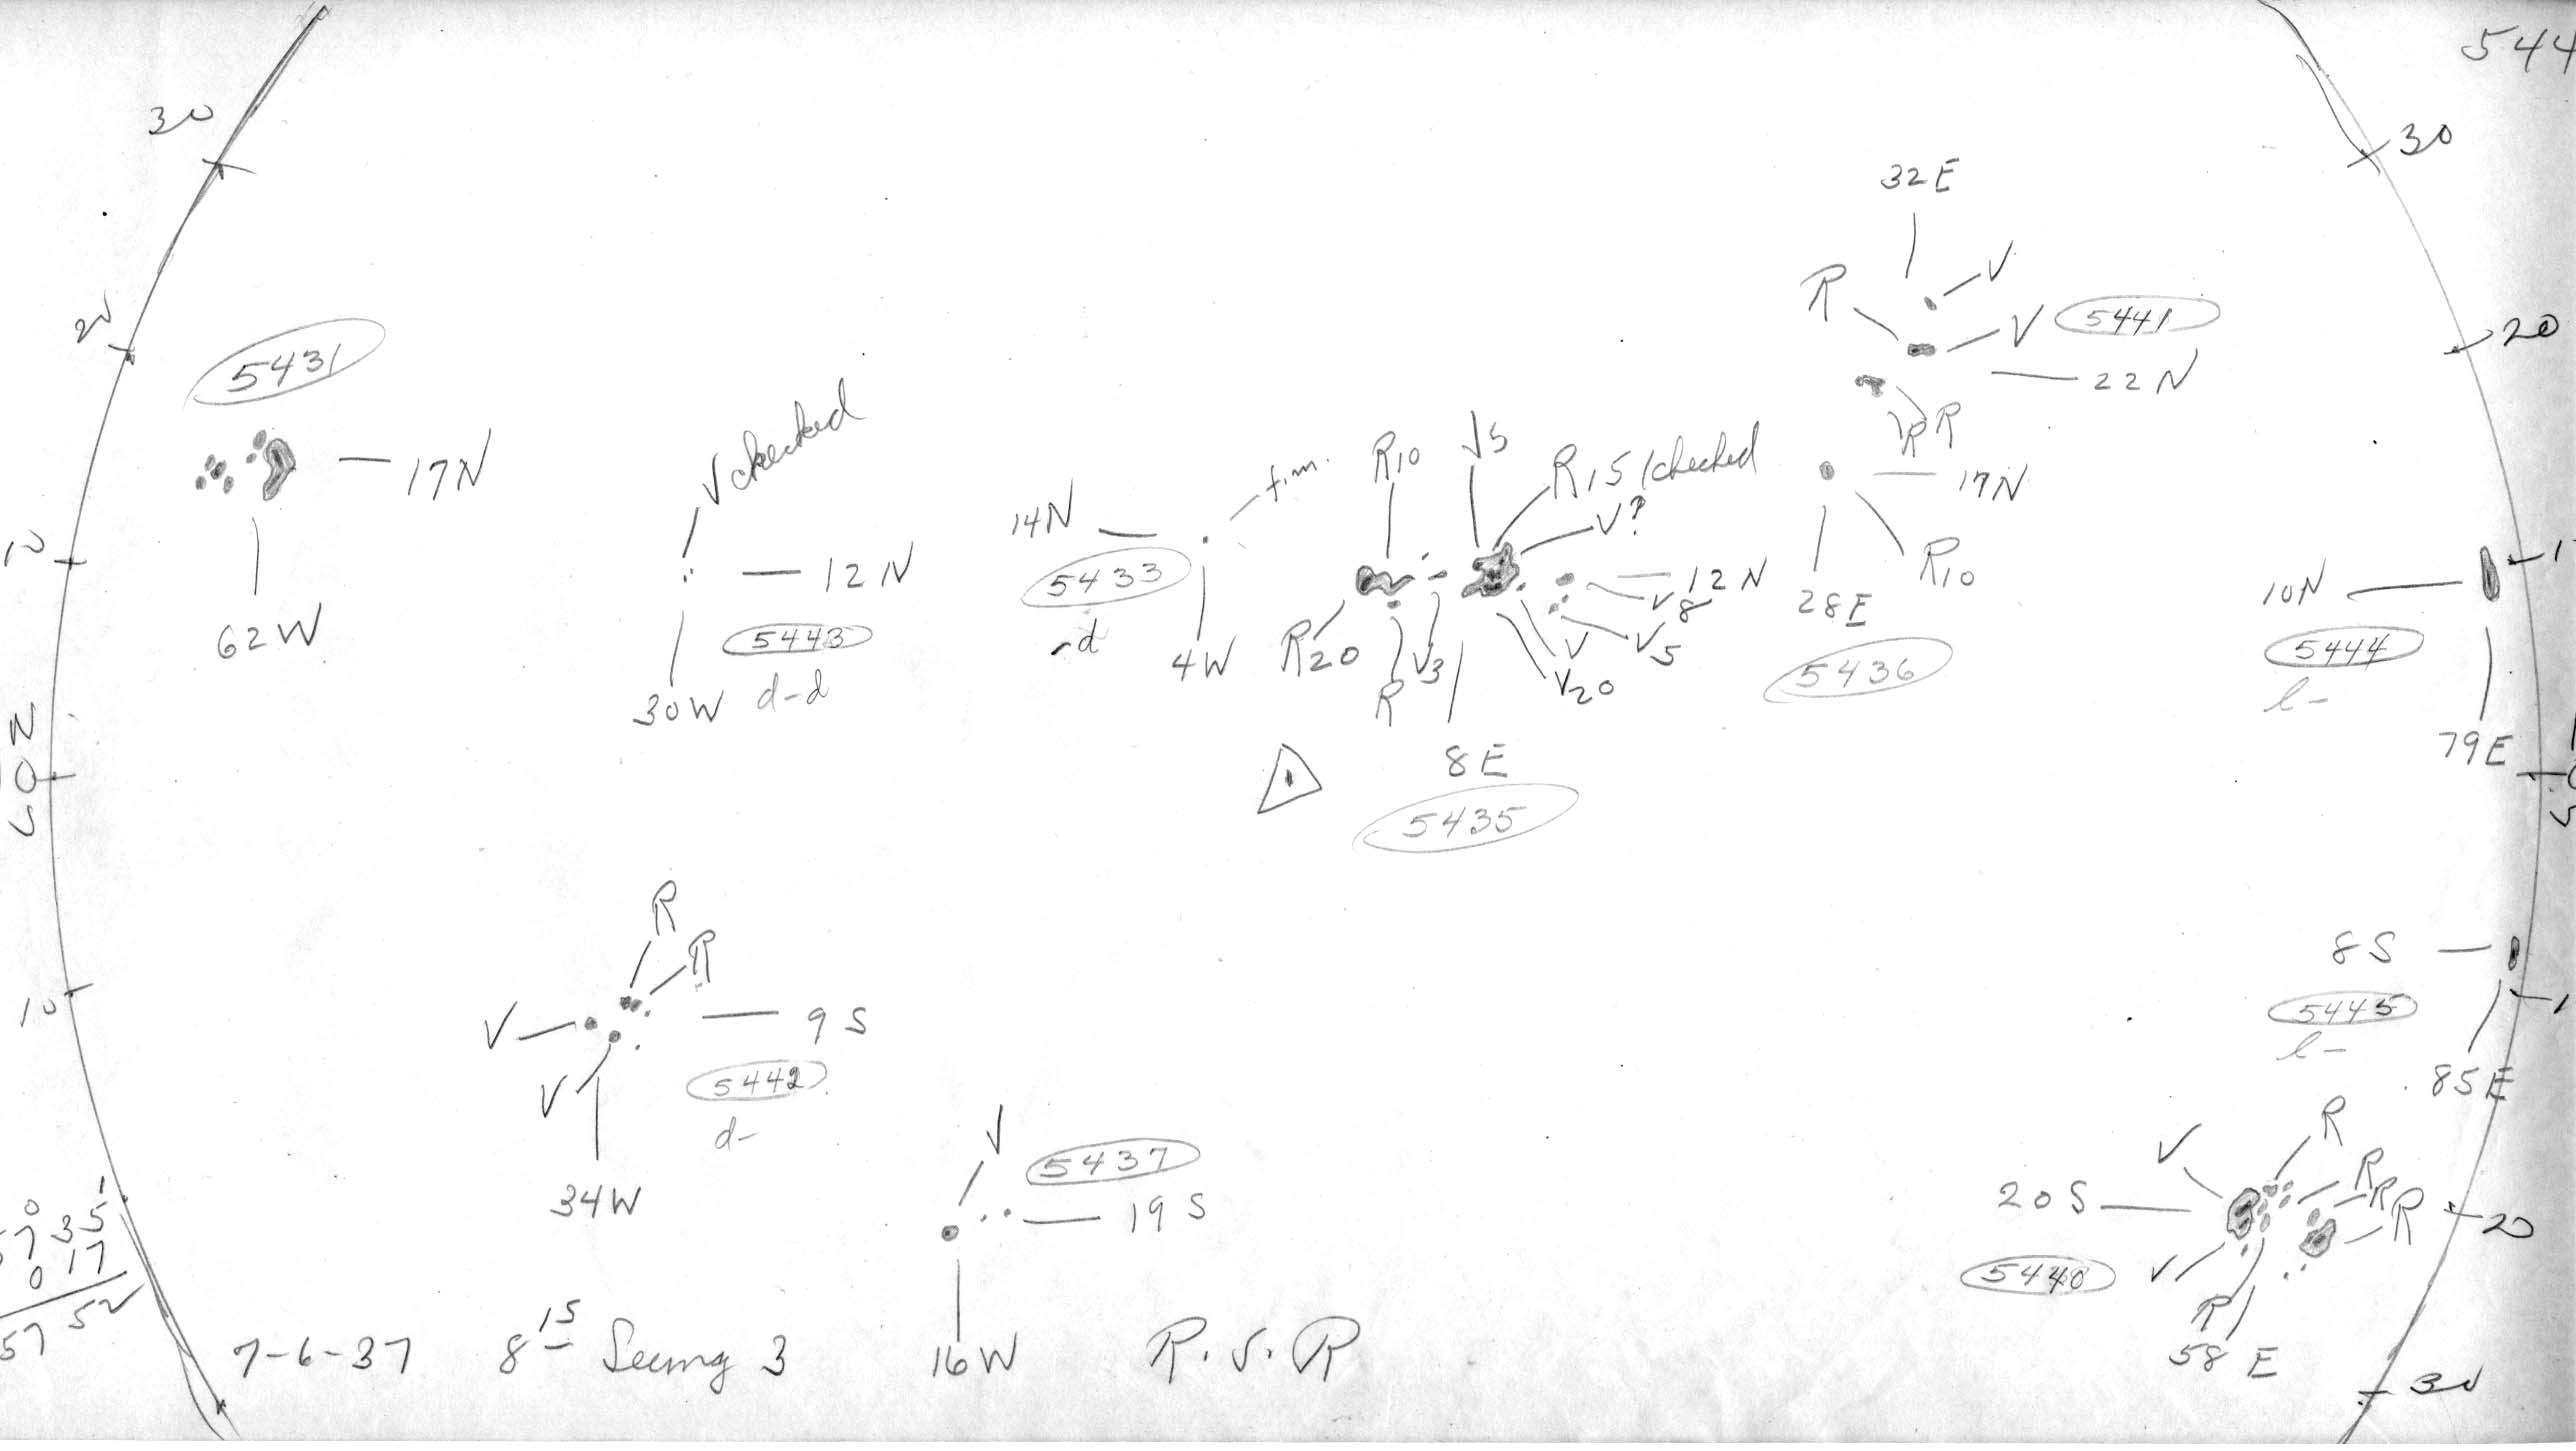 544
30
30
32E
R
V
V
5441
22N
R
R
20
20
5431
17N
62W
V checked
12N
5443
30W
d-d
14N
f.m.
5433
-d
4W
R10
V5
R15/checked
V?
12N
V8
V5
V
V20
R20
R
V3
8E
5435
17N
28E
R10
5436
10
10N
5444
l-
79E
0
10
R
R
V
V
9S
5442
d-
34W
8S
5445
l-
85E
V
5437
19S
16W
V
R
R
R
R
20S
5440
V
R
58E
20
30
35
0 17
57 52
7-6-37 8 15 Seeing 3 R.S.R